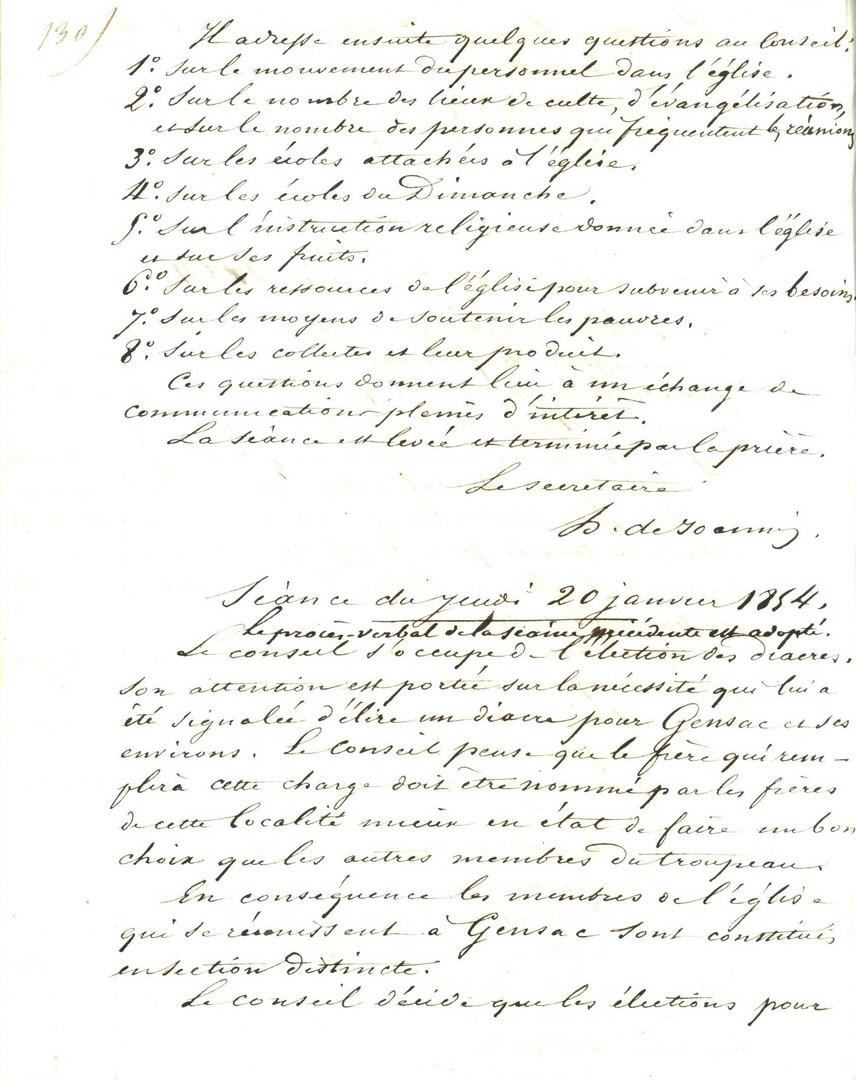 130)
Il adresse ensuite quelques questions au Conseil:
1º. Sur le mouvement du personnel dans l'église.
2º. Sur le nombre des lieux de culte, d'évangélisation,
et sur le nombre des personnes qui fréquentent les réunions
3º. Sur les écoles attachées à l'église.
4º. Sur les écoles du Dimanche.
5º. Sur l'instruction religieuse donnée dans l'église
et sur ses fruits.
6º. Sur les ressources de l'église pour subvenir à ses besoins.
7º. Sur les moyens de soutenir les pauvres.
8º. Sur les collectes et leur produit.
Ces questions donnent lieu à un échange de
communications pleines d'intérêt.
La séance est levée et terminée par la prière.
Le secretaire
de Joannis.
Séance du jeudi 20 janvier 1854.
Le procès-verbal de la séance précédente est adopté.
Le conseil s'occupe de l'élection des diacres.
Son attention est portée sur la nécessité qui lui a
été signalée d'élire un diacre pour Gensac et ses
environs. Le Conseil pense que le frère qui rem-
plira cette charge doit être nommé par les frères
de cette localité mieux en état de faire un bon
choix que les autres membres du troupeau.
En conséquence les membres de l'église
qui se réunissent à Gensac sont constitués
en section distincte.
Le conseil décide que les élections pour